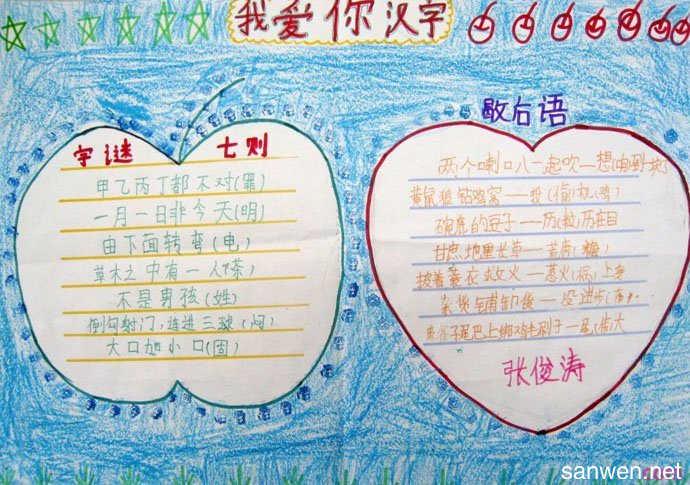 我爱你汉字
字谜 七则
甲乙丙丁都不对(罪)
一月一日非今天(明)
由下面转弯(电)
草木之中有一人(茶)
不是男孩(姓)
倒勾射门,连进三球(闷)
大口加小口(固)
歇后语
两个喇叭一起吹一想(响)到一块了
黄鼠狼钻鸡窝一一投(偷)机(鸡)
碗底的豆子一一历(粒)历在目
甘蔗地里长草一一荒唐(糖)
披着蓑衣救火一一惹火(祸)上身
张俊涛
sanwen.net